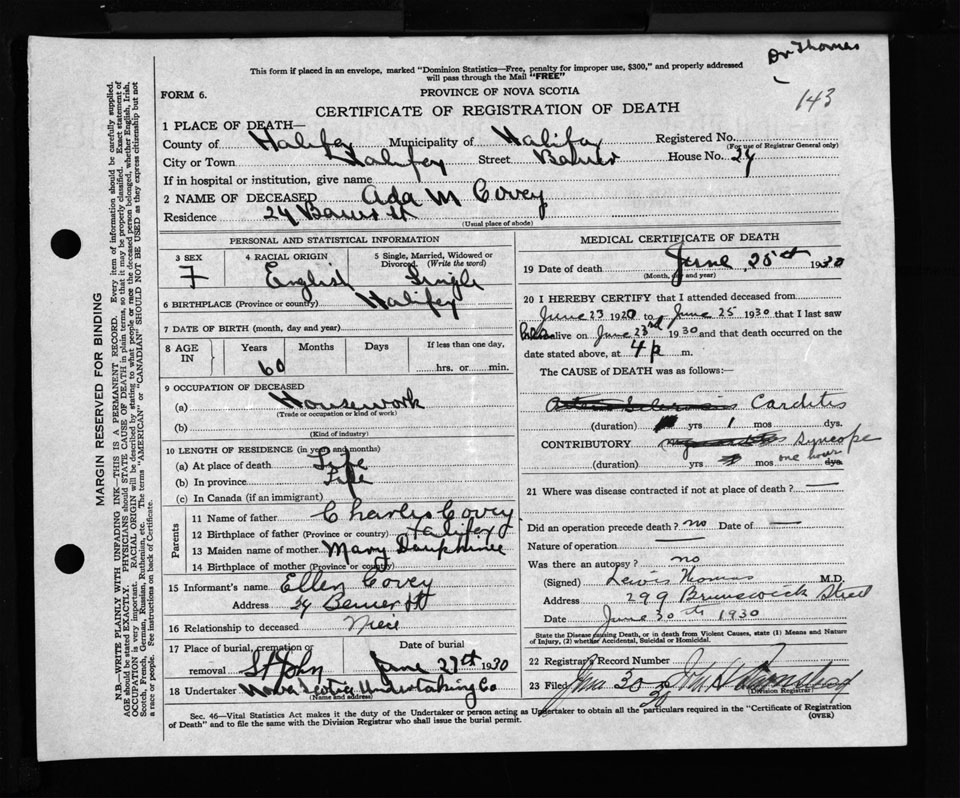 Dr Thomas
143
This form if placed in an envelope, marked "Dominion Statistics—Free, penalty for improper use, $300," and properly addressed
will pass through the Mail "FREE"
FORM 6.
PROVINCE OF NOVA SCOTIA
CERTIFICATE OF REGISTRATION OF DEATH
1 PLACE OF DEATH—
County of Halifax Municipality of Halifax Registered No.
(For use of Registrar General only)
City or Town Halifax Street Bauer House No. 24
If in hospital or institution, give name
2 NAME OF DECEASED Ada M Covey
Residence 24 Bauer St
(Usual place of abode)
MARGIN RESERVED FOR BINDING
N.B.—WRITE PLAINLY WITH UNFADING INK—THIS IS A PERMANENT RECORD. Every item of information should be carefully supplied.
AGE should be stated EXACTLY. PHYSICIANS should STATE CAUSE OF DEATH in plain terms, so that it may be properly classified. Exact statement of
OCCUPATION is very important. RACIAL ORIGIN will be described by stating to what people or race the deceased person belonged, whether English, Irish,
Scotch, French, German, Russian, Ruthenian, etc. The terms "AMERICAN" or "CANADIAN" SHOULD NOT BE USED as they express citizenship but not
a race or people. See instructions on back of Certificate.
PERSONAL AND STATISTICAL INFORMATION
3 SEX
F
4 RACIAL ORIGIN
English
5 Single, Married, Widowed or
Divorced (Write the word)
Single
6 BIRTHPLACE (Province or country) Halifax
7 DATE OF BIRTH (month, day and year)
8 AGE IN
Years Months Days If less than one day,
60 hrs. or min.
9 OCCUPATION OF DECEASED
(a) Housework
(Trade or occupation or kind of work)
(b)
(Kind of industry)
10 LENGTH OF RESIDENCE (in years and months)
(a) At place of death Life
(b) In province Life
(c) In Canada (if an immigrant)
Parents
11 Name of father Charles Covey
12 Birthplace of father (Province or country) Halifax
13 Maiden name of mother Mary Dauphinee
14 Birthplace of mother (Province or country)
15 Informant's name Ellen Covey
Address 24 Bauer St
16 Relationship to deceased Niece
17 Place of burial, cremation or
removal St John
Date of burial
June 27th 1930
18 Undertaker Nova Scotia Undertaking Co
(Name and address)
MEDICAL CERTIFICATE OF DEATH
19 Date of death June 25th 1930
(Month, day and year)
20 I HEREBY CERTIFY that I attended deceased from
June 23 1920 to June 25 1930 that I last saw
her alive on June 23rd 1930 and that death occurred on the
date stated above, at 4 p m.
The CAUSE of DEATH was as follows:—
Carditis
(duration) yrs 1 mos dys.
CONTRIBUTORY Syncope
(duration) yrs mos one hour dys
21 Where was disease contracted if not at place of death? —
Did an operation precede death? no Date of —
Nature of operation —
Was there an autopsy? no
(Signed) Lewis Thomas M.D.
Address 299 Brunswick Street
Date June 30th 1930
State the Disease causing Death, or in death from Violent Causes, state (1) Means and Nature
of Injury, (2) whether Accidental, Suicidal or Homicidal.
22 Registrar's Record Number
23 Filed June 30 30
(Division Registrar)
Sec. 46—Vital Statistics Act makes it the duty of the Undertaker or person acting as Undertaker to obtain all the particulars required in the "Certificate of Registration
of Death" and to file the same with the Division Registrar who shall issue the burial permit.
(OVER)